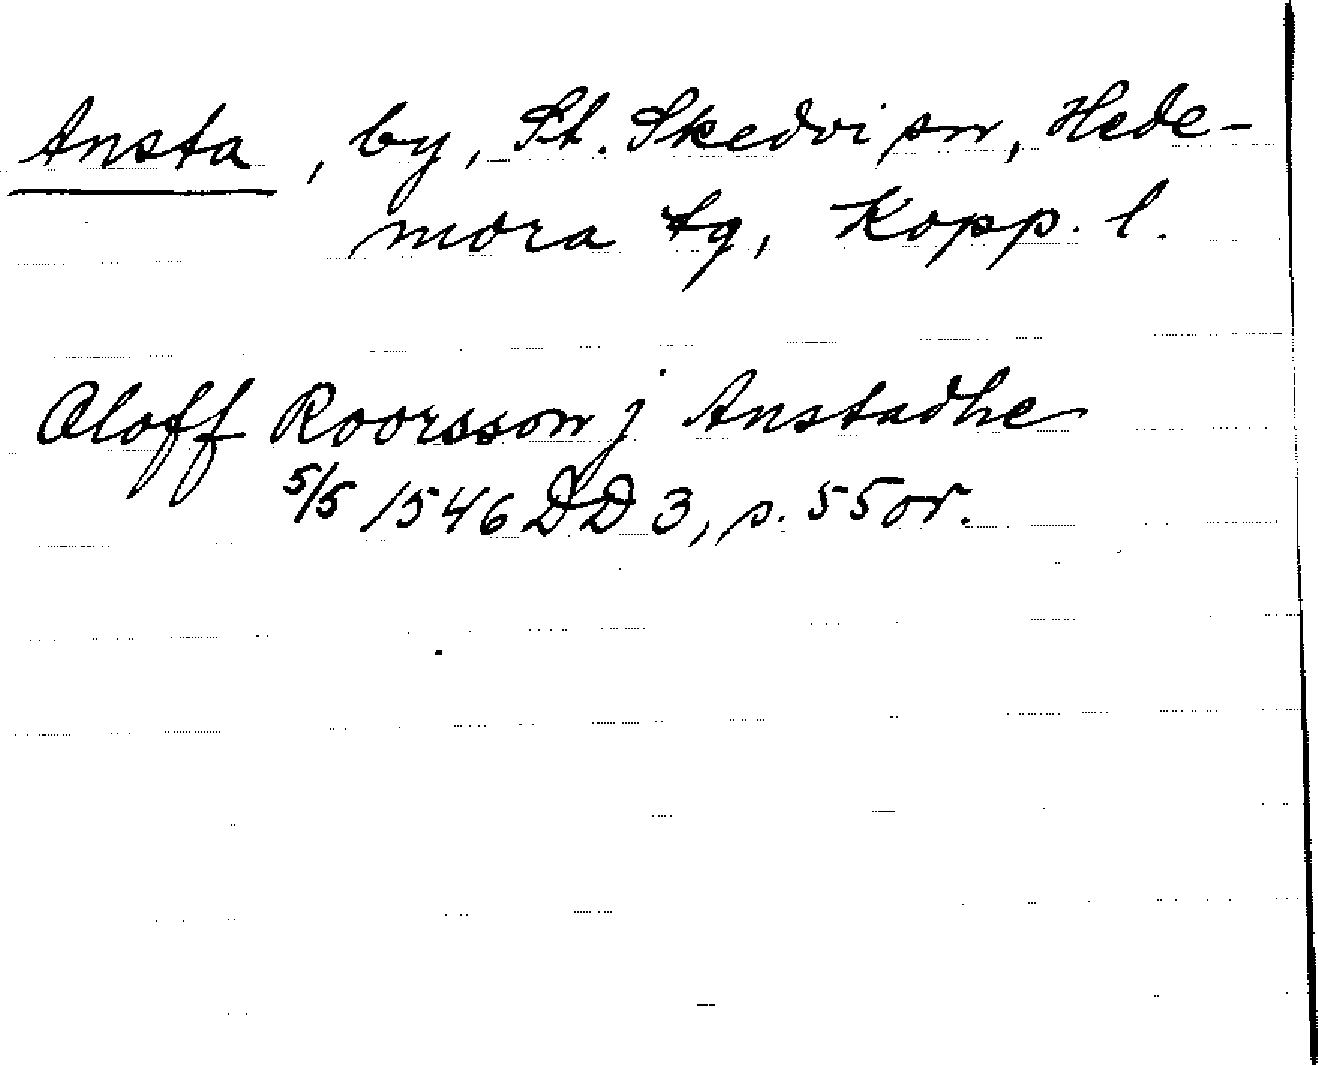 Ansta, by, St. Skedvi sn, Hede-
mora tg, Kopp. l.
Oloff Roorsson j Anstadhe
5/5 1546 DD 3, s. 55 or.